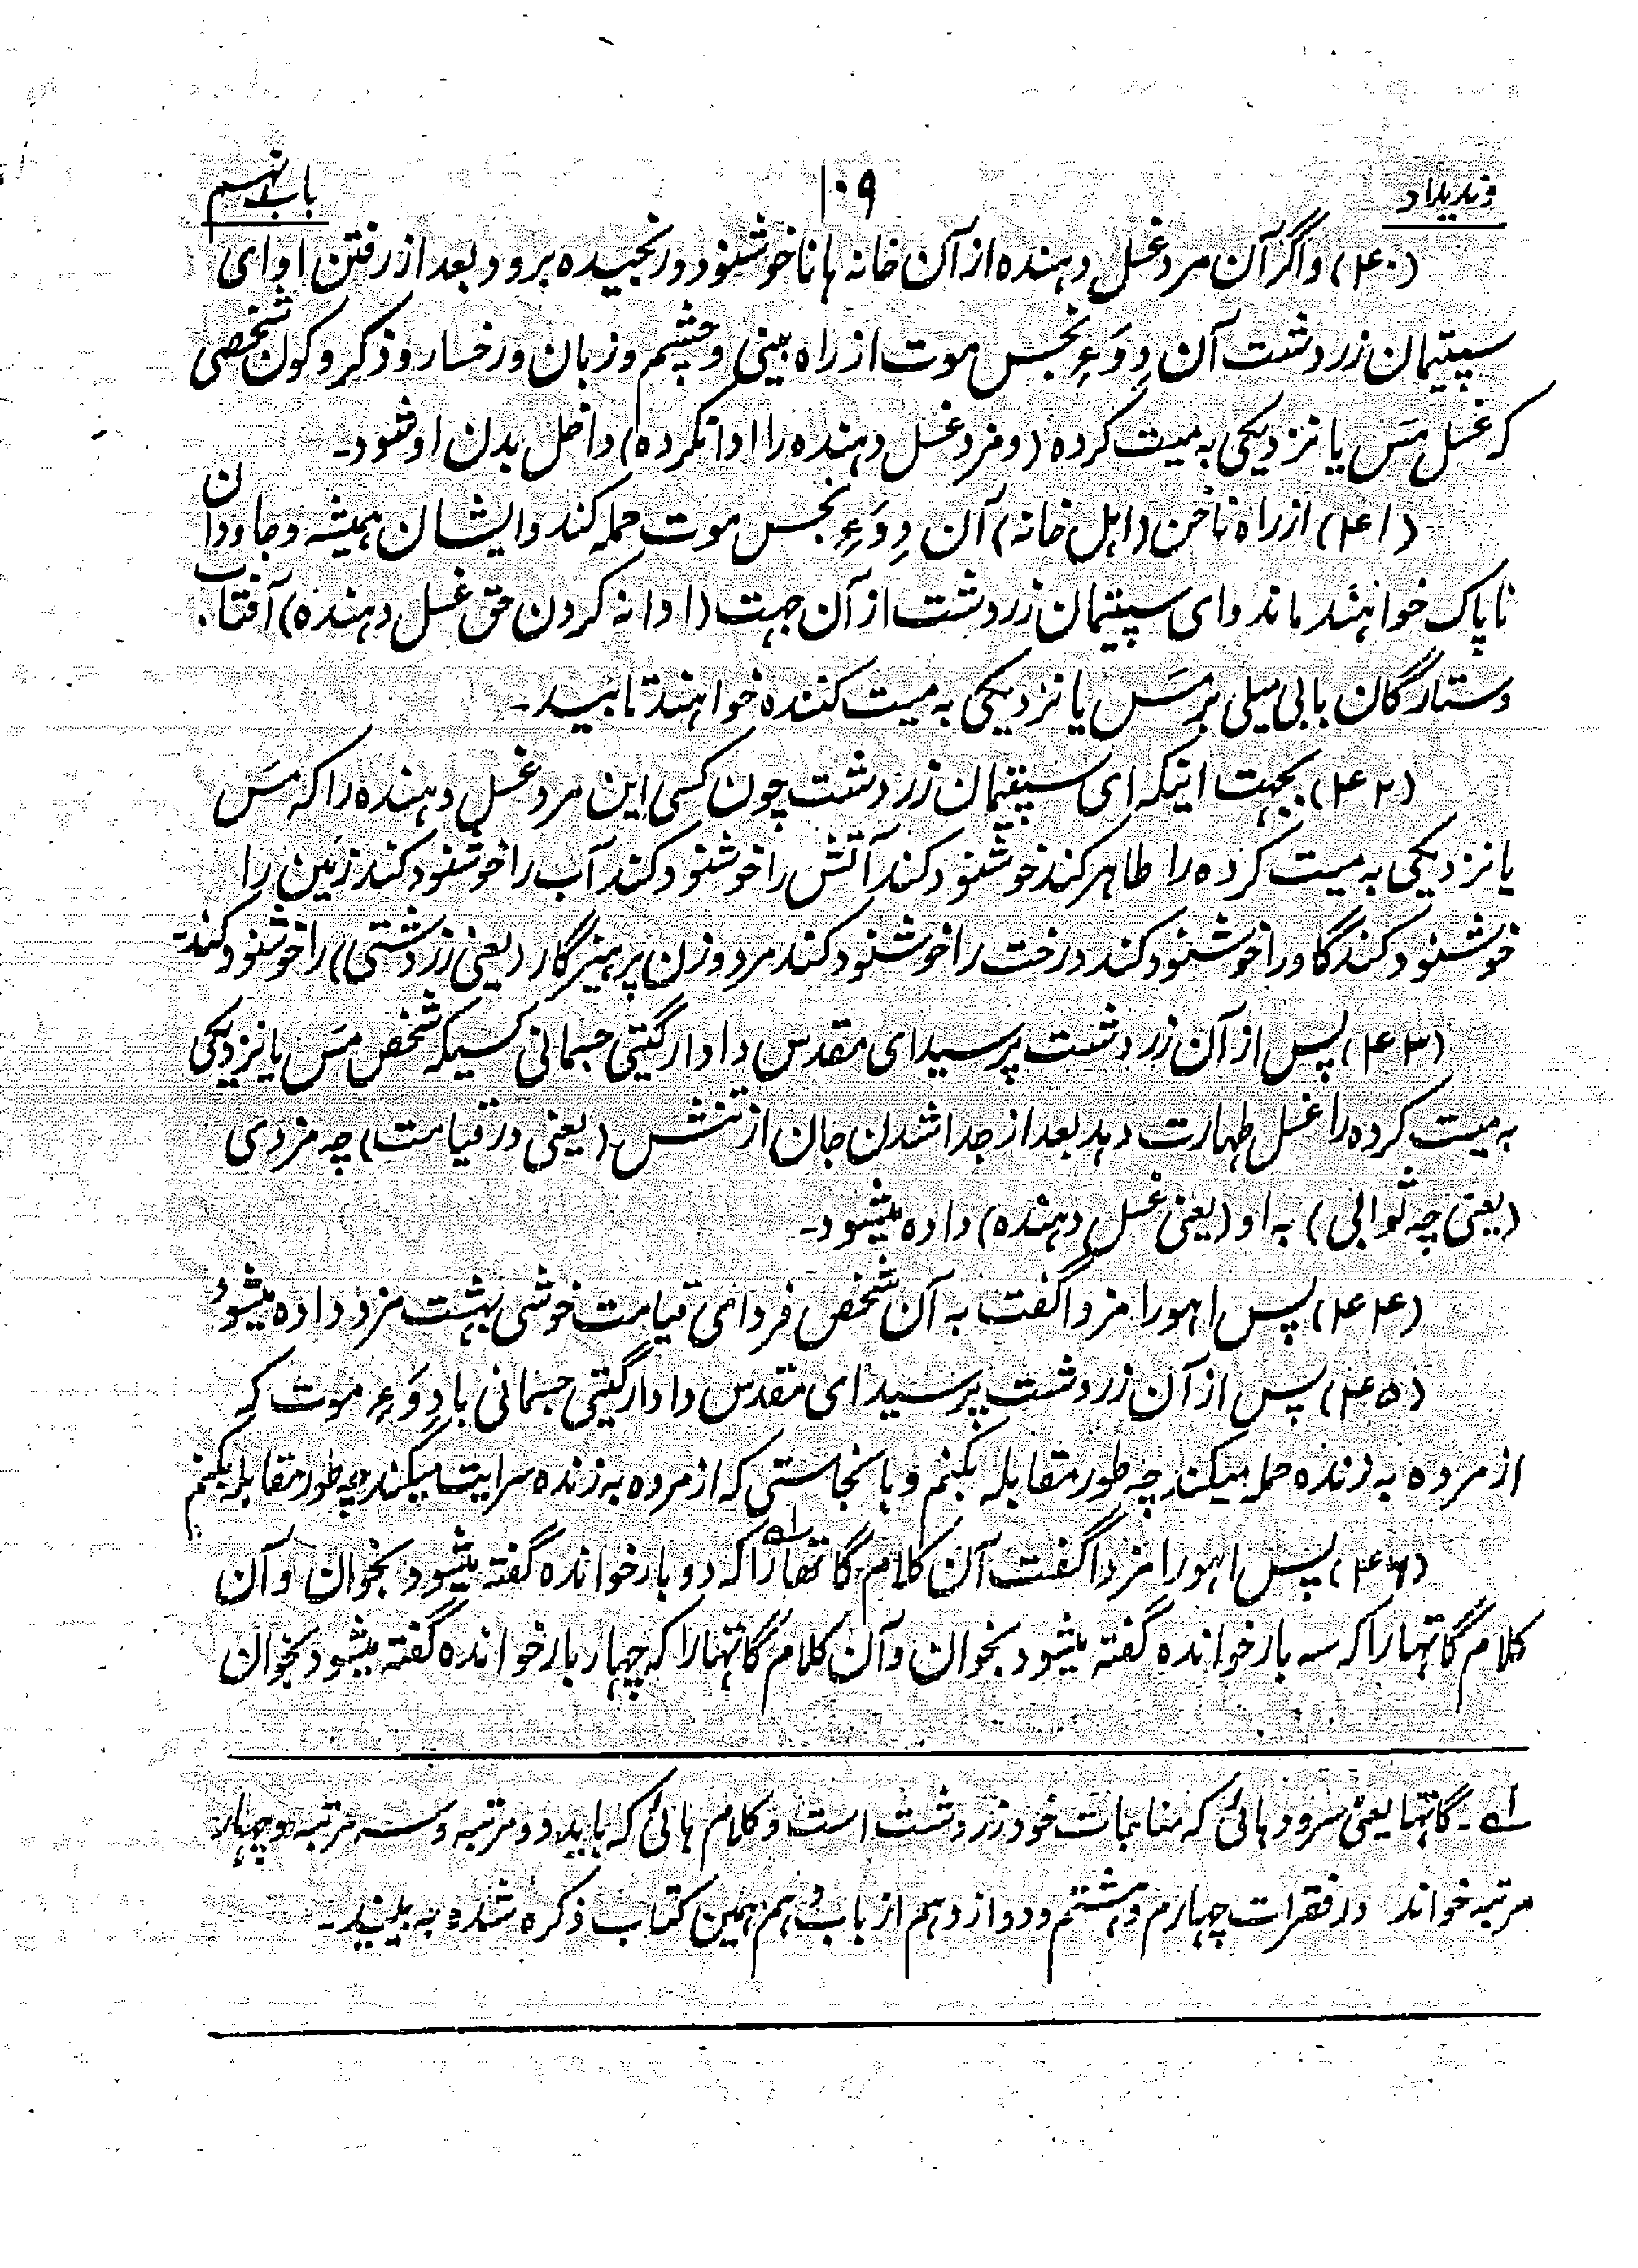 وندیداد
۱۰۹
باب نهم
(۴۰) واگر آن مرد غسل دهنده از آن خانه ها ناخوشنود و رنجیده برود بعد از رفتن او ای
سپیتمان زردشت آن دِوَءِ نجس موت از راه بینی و چشم و زبان و رخسار و ذکر و کون شخصی
که غسل مَس یا نزدیکی به میت کرده (و مزد غسل دهنده را ادا نکرده) داخل بدن او شود۔
(۴۱) از راه ناخن (اهل خانه) آن دِوَءِ نجس موت حمله کند و ایشان همیشه و جاودان
ناپاک خواهند ماند و ای سپیتمان زردشت از آن جهت (ادا نه کردن حق غسل دهنده) آفتاب
و ستارگان با بی میلی بر مَس یا نزدیکی به میت کننده خواهند تابید۔
(۴۲) بجهت اینکه ای سپیتمان زردشت چون کسی این مرد غسل دهنده را که مَس
یا نزدیکی به میت کرده را طاهر کند خوشنود کند آتش را خوشنود کند آب را خوشنود کند زمین را
خوشنود کند گاو را خوشنود کند درخت را خوشنود کند مرد و زن پرهیزگار (یعنی زردشتی) را خوشنود کند۔
(۴۳) پس از آن زردشت پرسید ای مقدس دادار گیتی جسمانی کسیکه شخص مَس یا نزدیکی
به میت کرده را غسل طهارت دهد بعد از جدا شدن جان از تنش (یعنی در قیامت) چه مزدی
(یعنی چه ثوابی) به او (یعنی غسل دهنده) داده میشود۔
(۴۴) پس اهورا مزدا گفت به آن شخص فردای قیامت خوشی بهشت مزد داده میشود
(۴۵) پس از آن زردشت پرسید ای مقدس دادار گیتی جسمانی با دِوَءِ موت که
از مرده به زنده حمله میکند چه طور مقابله بکنم و با نجاستی که از مرده به زنده سرایت میکند چه طور مقابله بکنم
(۴۶) پس اهورا مزدا گفت آن کلام گاتها را له که دو بار خوانده گفته میشود بخوان و آن
کلام گاتها را که سه بار خوانده گفته میشود بخوان و آن کلام گاتها را که چهار بار خوانده گفته میشود بخوان
له ۔ گاتها یعنی سرودهائی که مناجات خود زردشت است و کلام هائی که باید دو مرتبه و سه مرتبه و چهار
مرتبه خواند در فقرات چهارم و هشتم و دوازدهم از باب دهم همین کتاب ذکر شده به بینید۔